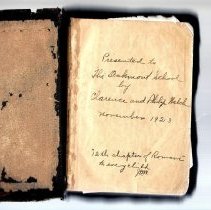 Presented to
The Oakmont School
by
Clarence and Philip Welch
November 1923
12th chapter of Romans